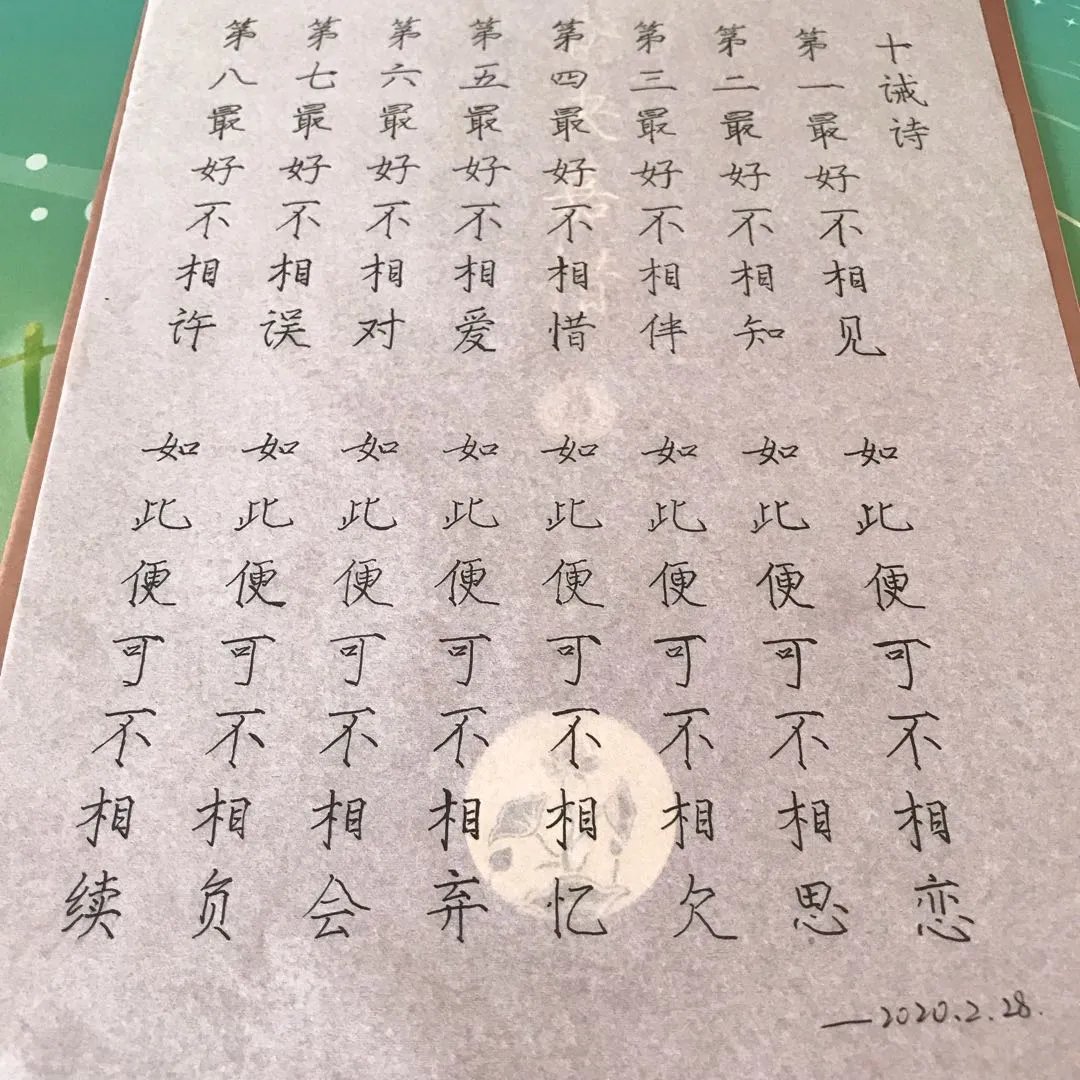 十诫诗
第一最好不相见
如此便可不相恋
第二最好不相知
如此便可不相思
第三最好不相伴
如此便可不相欠
第四最好不相惜
如此便可不相忆
第五最好不相爱
如此便可不相弃
第六最好不相对
如此便可不相会
第七最好不相误
如此便可不相负
第八最好不相许
如此便可不相续
—2020.2.28.